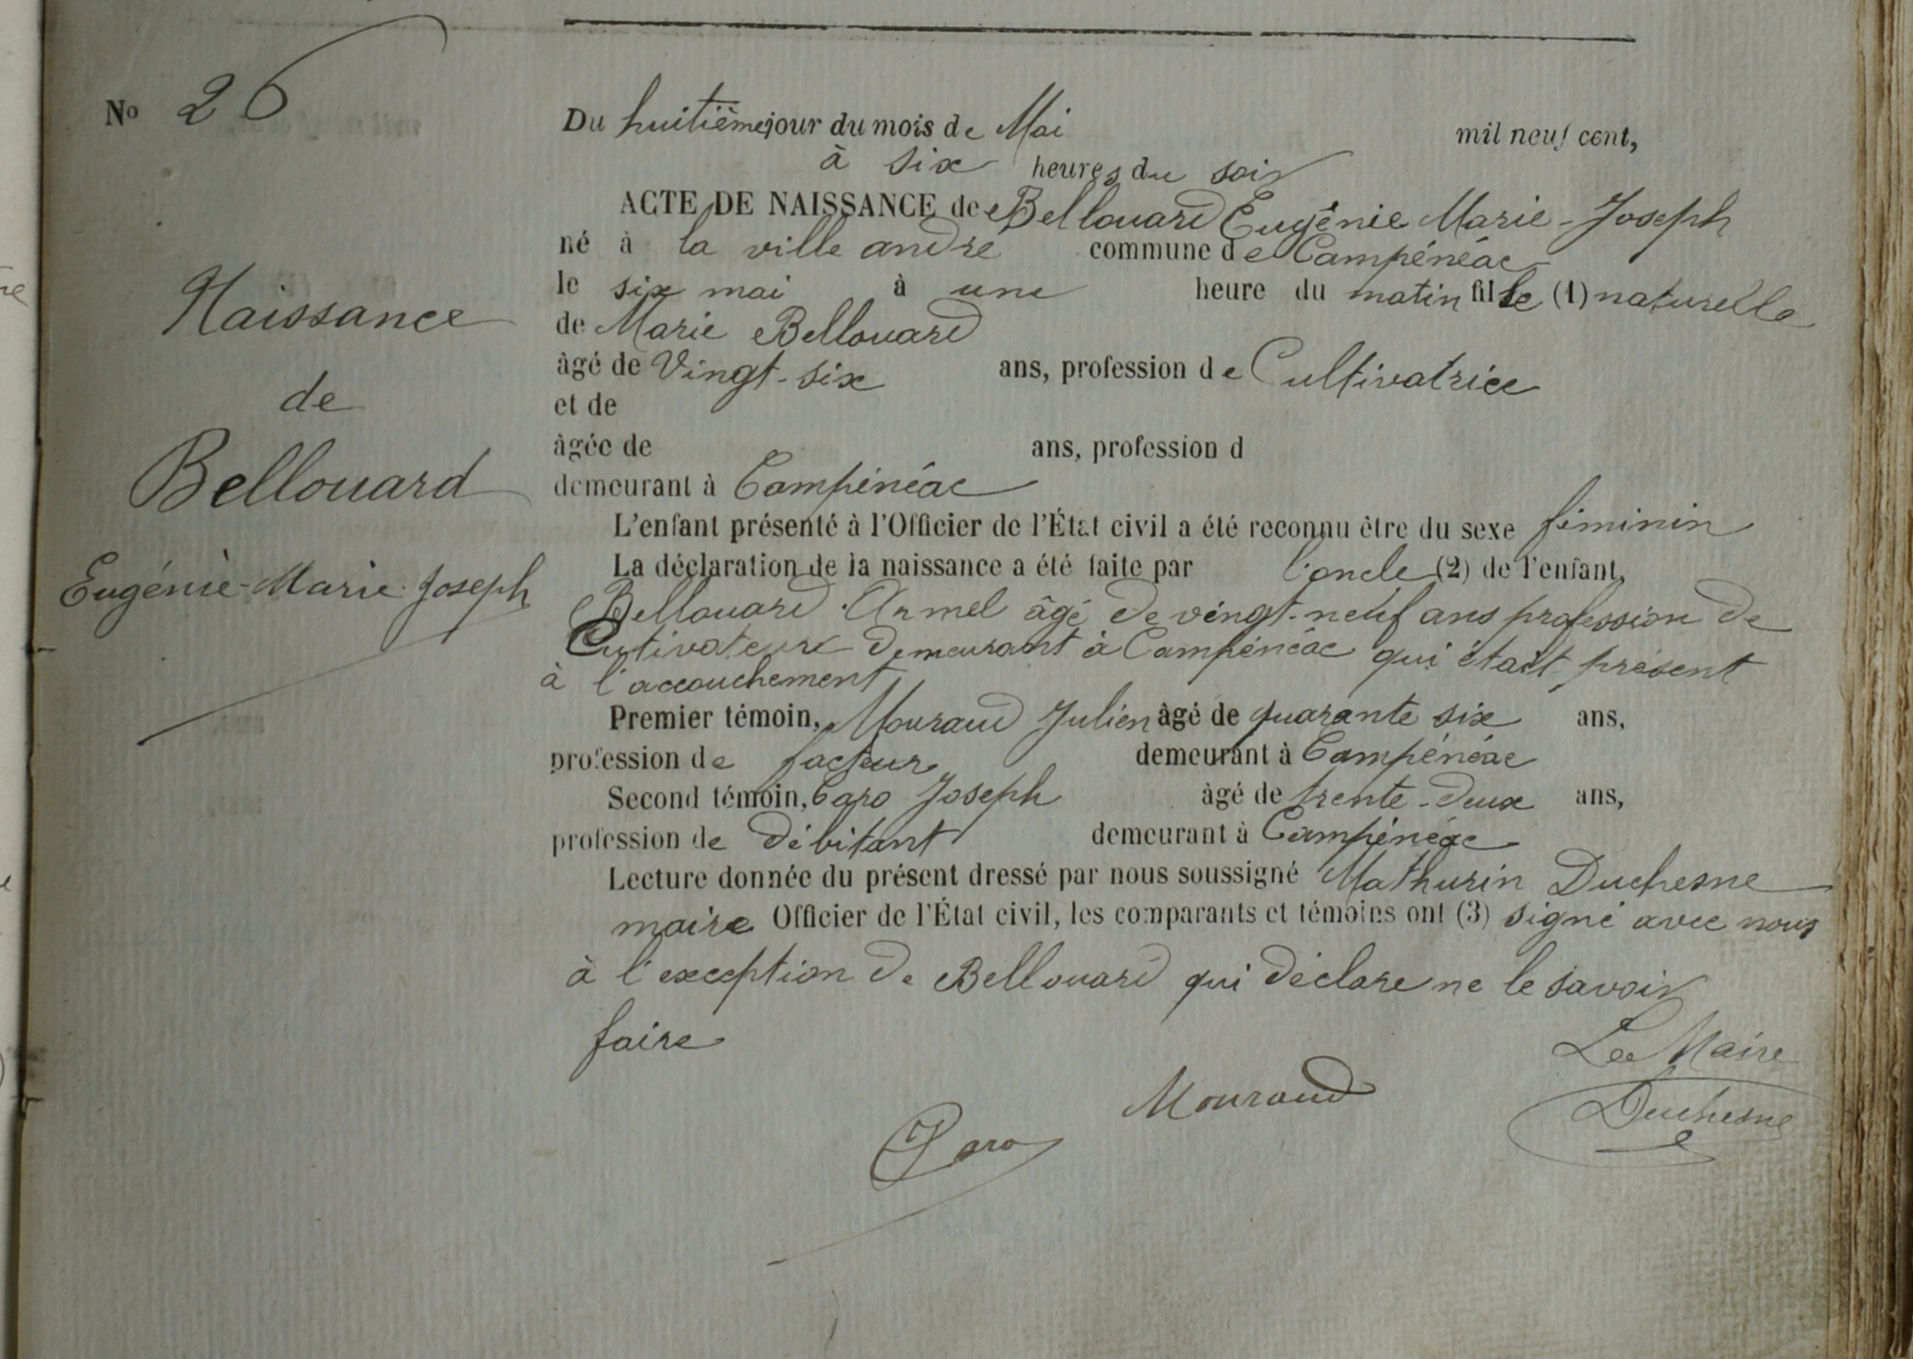 No 26
Naissance
de
Bellouard
Eugénie-Marie-Joseph
Du huitième jour du mois de Mai mil neuf cent,
à six heures du soir
ACTE DE NAISSANCE de Bellouard Eugénie Marie-Joseph
né à la ville andre commune de Campénéac
le six mai à une heure du matin fille (1) naturelle
de Marie Bellouard
âgé de Vingt-six ans, profession de Cultivatrice
et de
âgée de ans, profession d
demeurant à Campénéac
L'enfant présenté à l'Officier de l'État civil a été reconnu être du sexe féminin
La déclaration de la naissance a été faite par l'oncle (2) de l'enfant,
Bellouard Armel âgé de vingt-neuf ans profession de
Cutivateur demeurant à Campénéac qui était présent
à l'accouchement
Premier témoin, Mouraud Julien âgé de quarante six ans,
profession de facteur demeurant à Campénéac
Second témoin, Caro Joseph âgé de trente-deux ans,
profession de débitant demeurant à Campénéac
Lecture donnée du présent dressé par nous soussigné Mathurin Duchesne
maire Officier de l'État civil, les comparants et témoins ont (3) signé avec nous
à l'exception de Bellouard qui déclare ne le savoir
faire
Le Maire
Mouraud
Duchesne
Caro